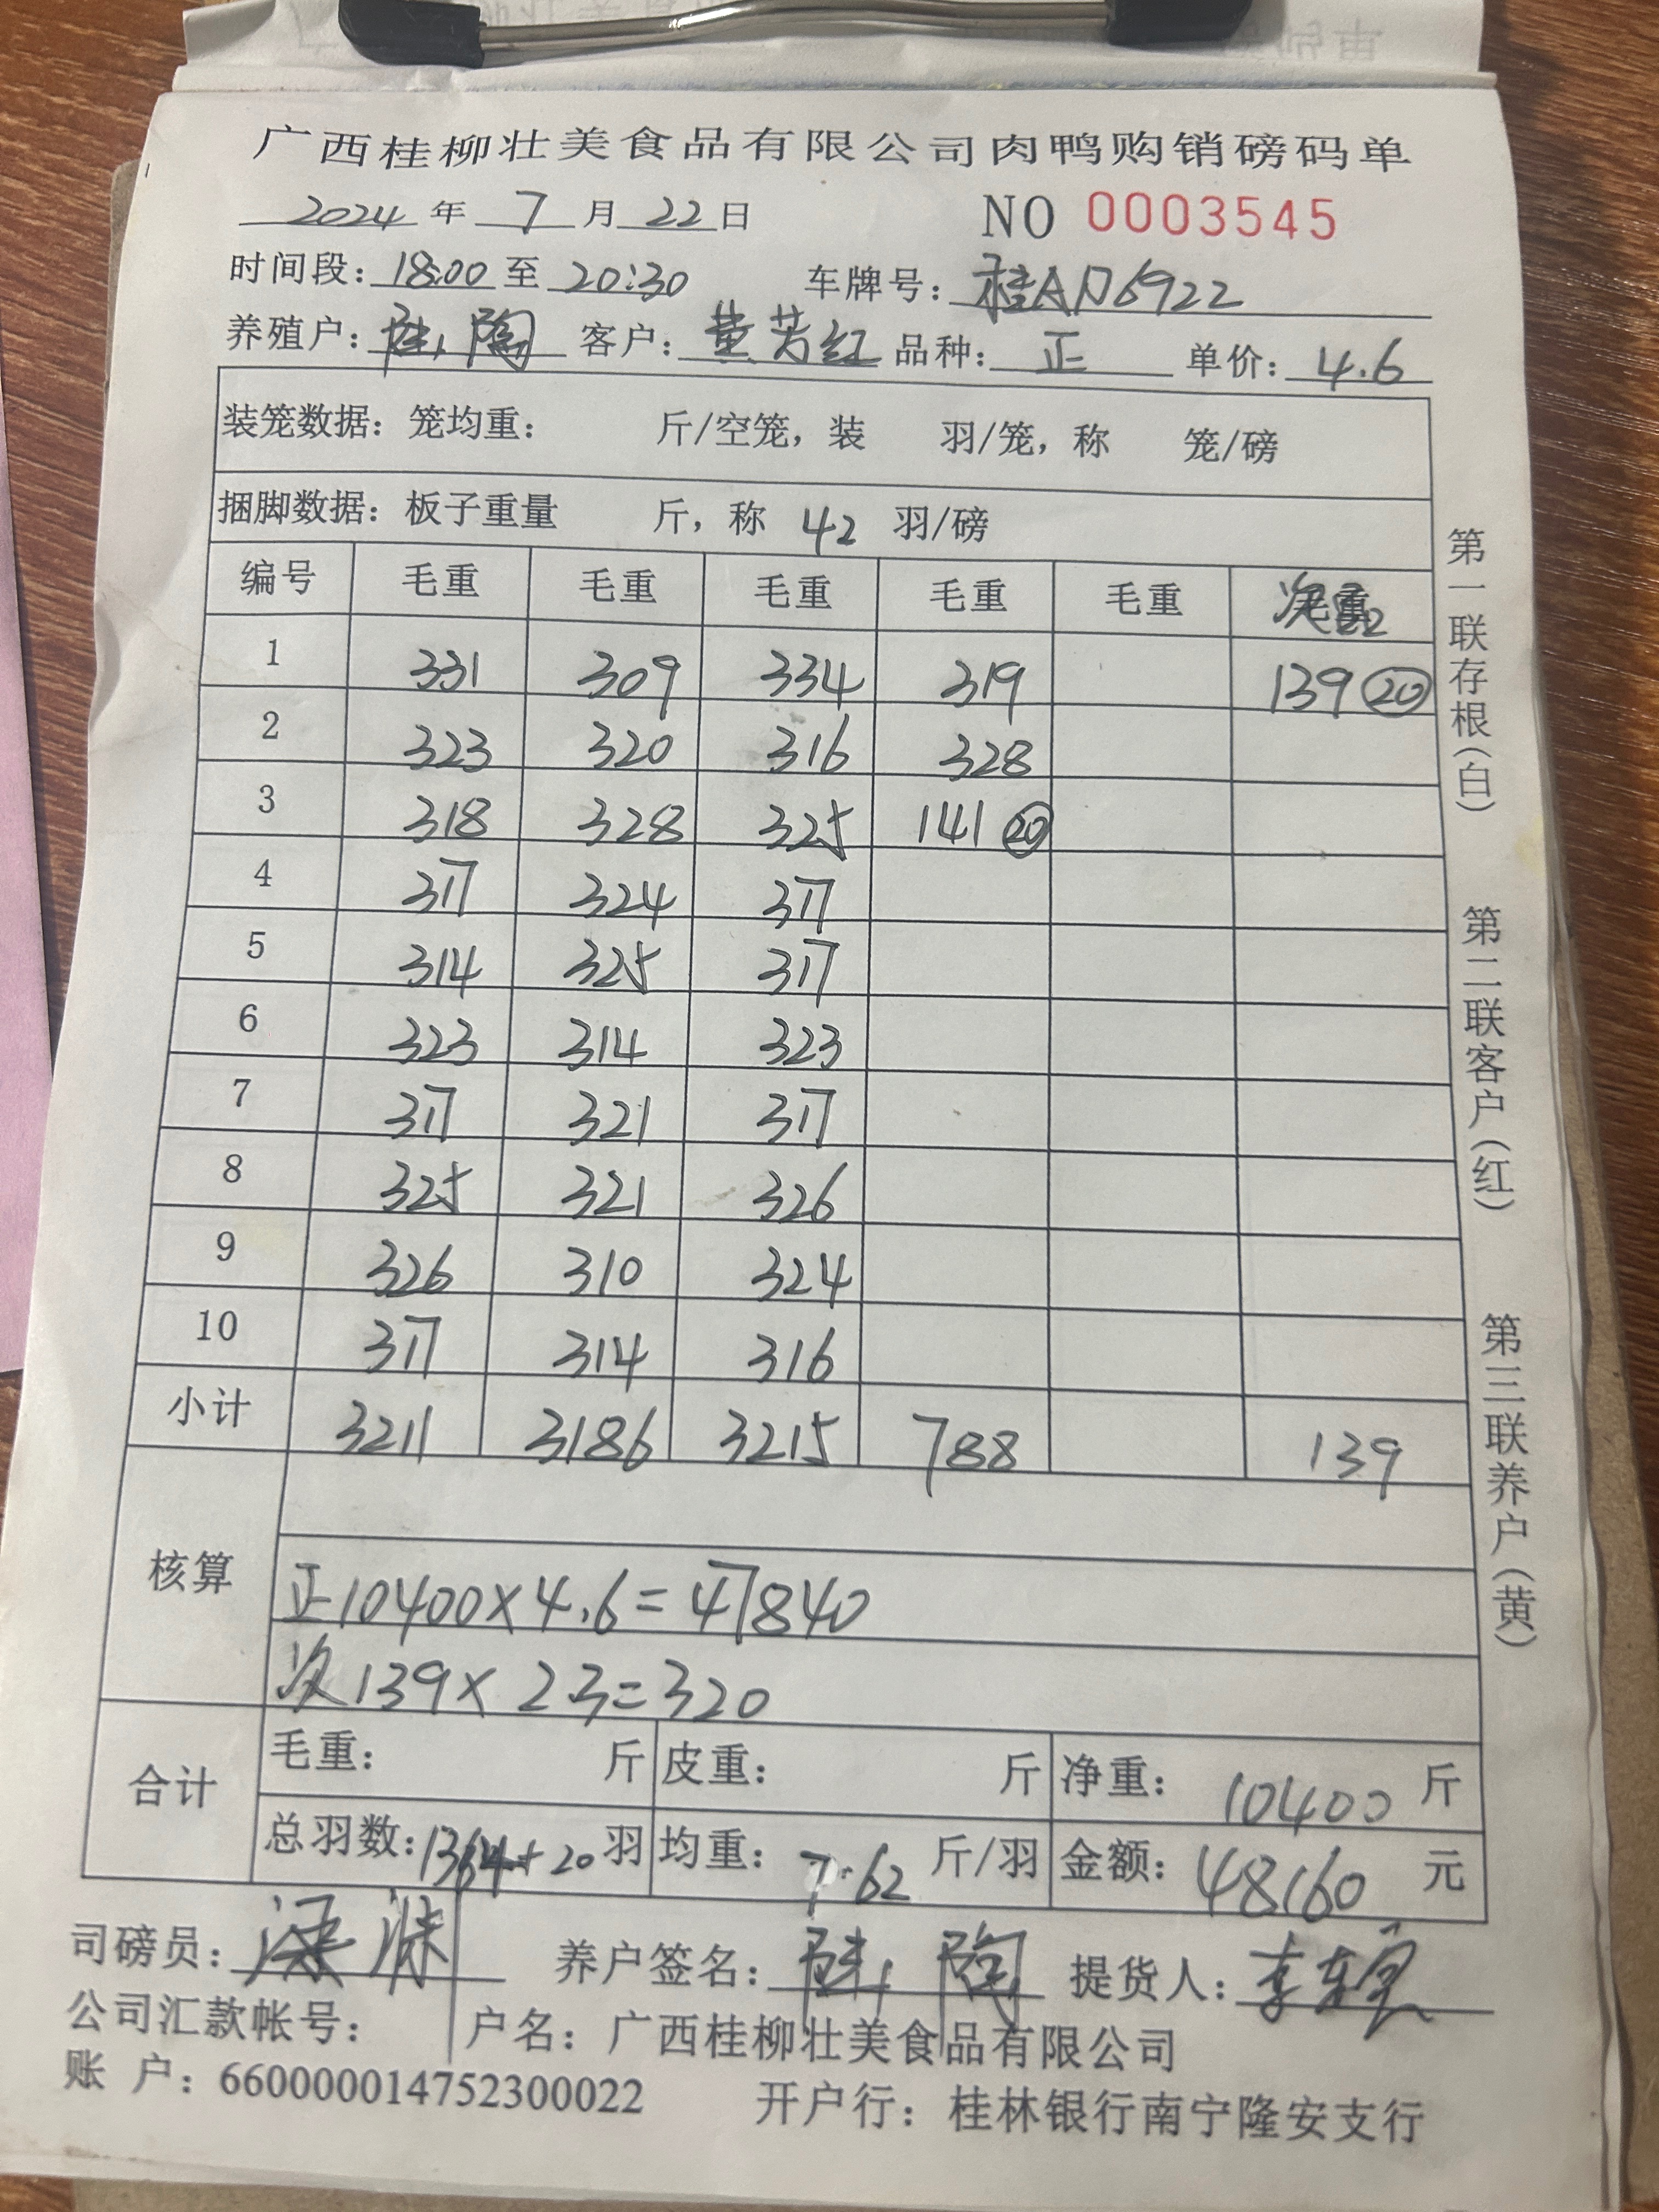 广西桂柳壮美食品有限公司肉鸭购销磅码单
2024 年 7 月 22 日 NO 0003545
时间段: 18:00 至 20:30 车牌号: 桂AD6922
养殖户: 陶 客户: 黄芳红 品种: 正 单价: 4.6
装笼数据: 笼均重: 斤/空笼, 装 羽/笼, 称 笼/磅
捆脚数据: 板子重量 斤, 称 42 羽/磅
编号 毛重 毛重 毛重 毛重 毛重
1 331 309 334 319 139 20
2 323 320 316 328
3 318 328 325 141 20
4 317 324 317
5 314 325 317
6 323 314 323
7 317 321 317
8 325 321 326
9 326 310 324
10 317 314 316
小计 3211 3186 3215 788 139
核算
正10400×4.6=47840
次139×2.3=320
合计
毛重: 斤 皮重: 斤 净重: 10400 斤
总羽数: 1364+20 羽 均重: 7.62 斤/羽 金额: 48160 元
司磅员: 养户签名: 陶 提货人: 李
公司汇款帐号: 户名: 广西桂柳壮美食品有限公司
账 户: 660000014752300022 开户行: 桂林银行南宁隆安支行
第一联存根(白)
第二联客户(红)
第三联养户(黄)